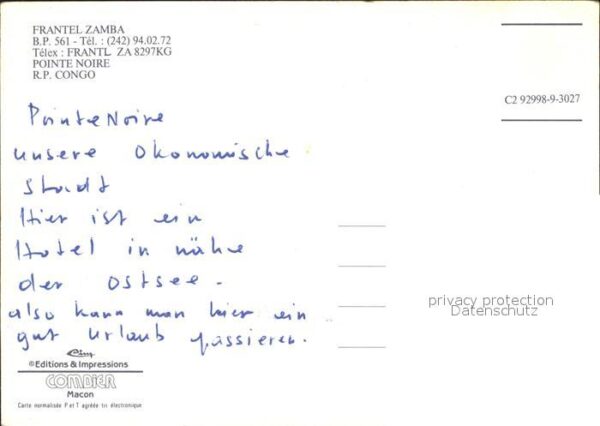 FRANTEL ZAMBA
B.P. 561 - Tél. : (242) 94.02.72
Télex : FRANTL ZA 8297KG
POINTE NOIRE
R.P. CONGO
C2 92998-9-3027
Pointe Noire
unsere Okonomische
Stadt
Hier ist ein
Hotel in nähe
der ostsee.
also kann man hier ein
gut Urlaub passieren.
privacy protection
Datenschutz
Cim
©Editions & Impressions
COMBIER
Macon
Carte normalisée P et T agréée tri électronique